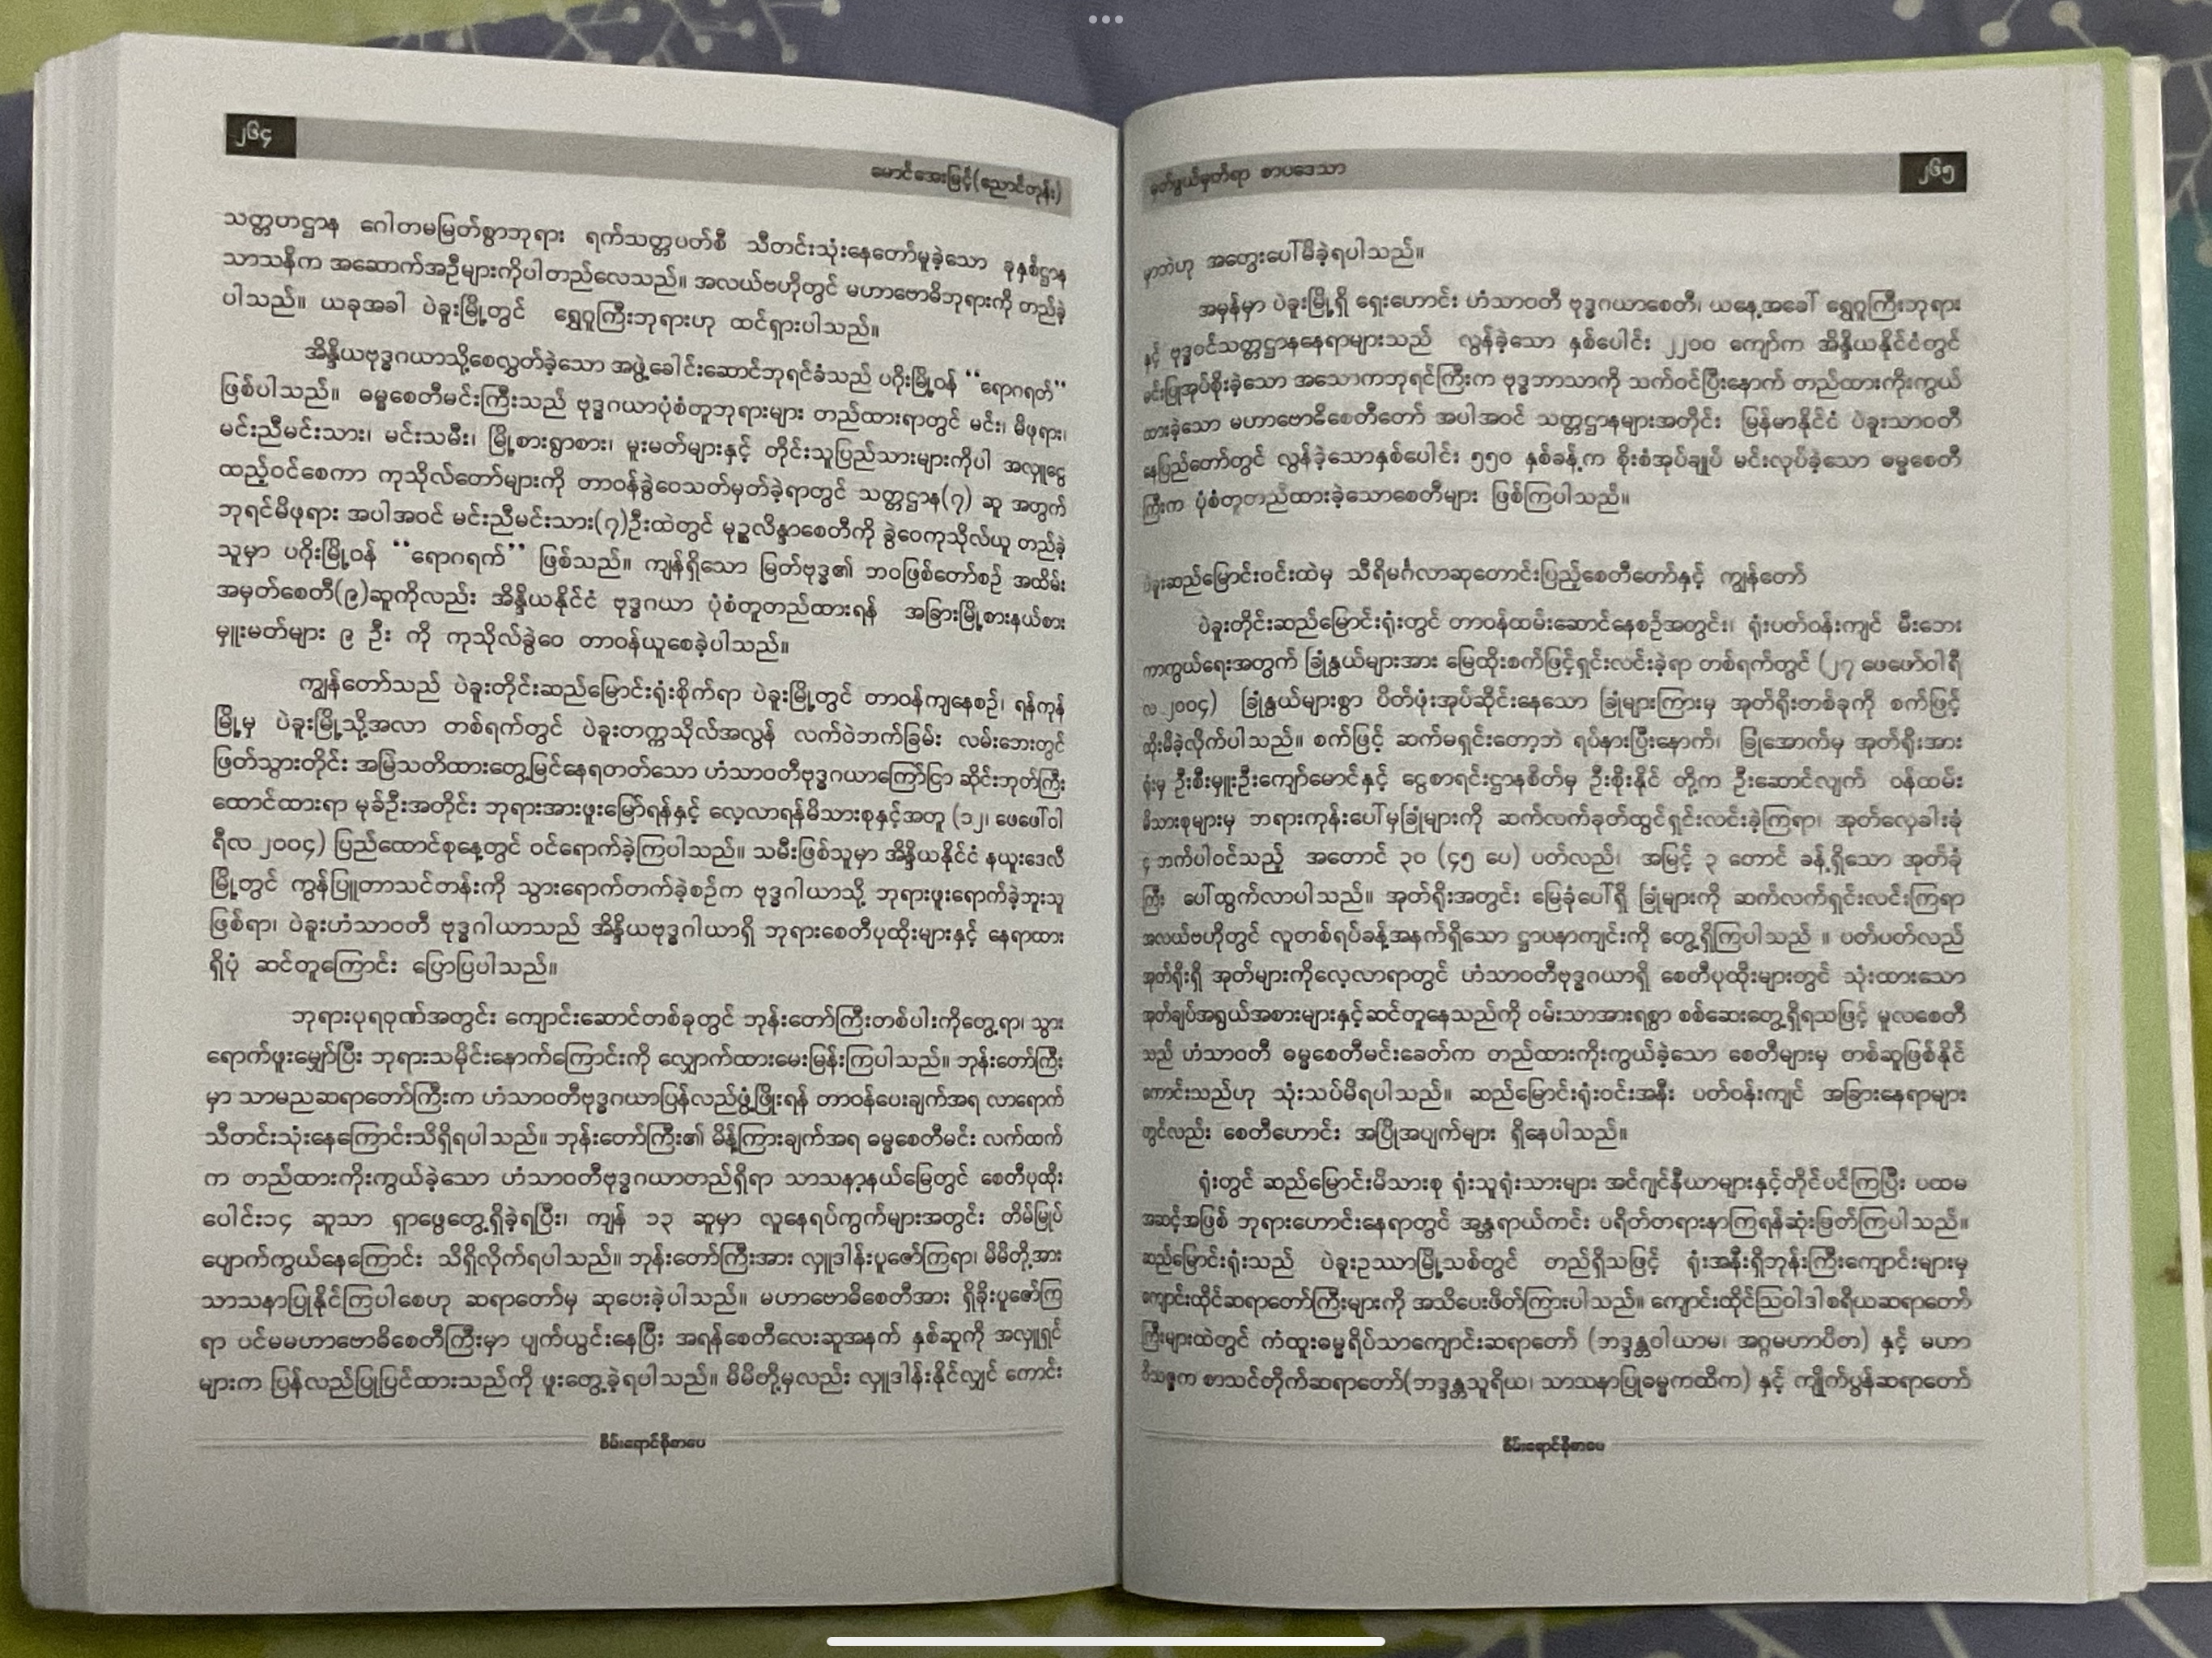 ၂၆၄
မောင်အေးမြင့်(ညောင်တုန်း)
သတ္တဟဌာန ဂေါတမမြတ်စွာဘုရား ရက်သတ္တပတ်စီ သီတင်းသုံးနေတော်မူခဲ့သော ခုနှစ်ဌာန
သာသနိက အဆောက်အဦများကိုပါတည်လေသည်။ အလယ်ဗဟိုတွင် မဟာဗောဓိဘုရားကို တည်ခဲ့
ပါသည်။ ယခုအခါ ပဲခူးမြို့တွင် ရွှေဂူကြီးဘုရားဟု ထင်ရှားပါသည်။
အိန္ဒိယဗုဒ္ဓဂယာသို့စေလွှတ်ခဲ့သော အဖွဲ့ခေါင်းဆောင်ဘုရင်ခံသည် ပဂိုးမြို့ဝန် “ရောဂရတ်”
ဖြစ်ပါသည်။ ဓမ္မစေတီမင်းကြီးသည် ဗုဒ္ဓဂယာပုံစံတူဘုရားများ တည်ထားရာတွင် မင်း၊ မိဖုရား၊
မင်းညီမင်းသား၊ မင်းသမီး၊ မြို့စားရွာစား၊ မူးမတ်များနှင့် တိုင်းသူပြည်သားများကိုပါ အလှူငွေ
ထည့်ဝင်စေကာ ကုသိုလ်တော်များကို တာဝန်ခွဲဝေသတ်မှတ်ခဲ့ရာတွင် သတ္တဌာန(၇) ဆူ အတွက်
ဘုရင်မိဖုရား အပါအဝင် မင်းညီမင်းသား(၇)ဦးထဲတွင် မုဉ္စလိန္ဒာစေတီကို ခွဲဝေကုသိုလ်ယူ တည်ခဲ့
သူမှာ ပဂိုးမြို့ဝန် “ရောဂရက်” ဖြစ်သည်။ ကျန်ရှိသော မြတ်ဗုဒ္ဓ၏ ဘဝဖြစ်တော်စဉ် အထိမ်း
အမှတ်စေတီ(၉)ဆူကိုလည်း အိန္ဒိယနိုင်ငံ ဗုဒ္ဓဂယာ ပုံစံတူတည်ထားရန် အခြားမြို့စားနယ်စား
မှူးမတ်များ ၉ ဦး ကို ကုသိုလ်ခွဲဝေ တာဝန်ယူစေခဲ့ပါသည်။
ကျွန်တော်သည် ပဲခူးတိုင်းဆည်မြောင်းရုံးစိုက်ရာ ပဲခူးမြို့တွင် တာဝန်ကျနေစဉ်၊ ရန်ကုန်
မြို့မှ ပဲခူးမြို့သို့အလာ တစ်ရက်တွင် ပဲခူးတက္ကသိုလ်အလွန် လက်ဝဲဘက်ခြမ်း လမ်းဘေးတွင်
ဖြတ်သွားတိုင်း အမြဲသတိထားတွေ့မြင်နေရတတ်သော ဟံသာဝတီဗုဒ္ဓဂယာကြော်ငြာ ဆိုင်းဘုတ်ကြီး
ထောင်ထားရာ မုခ်ဦးအတိုင်း ဘုရားအားဖူးမြော်ရန်နှင့် လေ့လာရန်မိသားစုနှင့်အတူ (၁၂၊ ဖေဖေါ်ဝါ
ရီလ ၂၀၀၄) ပြည်ထောင်စုနေ့တွင် ဝင်ရောက်ခဲ့ကြပါသည်။ သမီးဖြစ်သူမှာ အိန္ဒိယနိုင်ငံ နယူးဒေလီ
မြို့တွင် ကွန်ပြူတာသင်တန်းကို သွားရောက်တက်ခဲ့စဉ်က ဗုဒ္ဓဂါယာသို့ ဘုရားဖူးရောက်ခဲ့ဘူးသူ
ဖြစ်ရာ၊ ပဲခူးဟံသာဝတီ ဗုဒ္ဓဂါယာသည် အိန္ဒိယဗုဒ္ဓဂါယာရှိ ဘုရားစေတီပုထိုးများနှင့် နေရာထား
ရှိပုံ ဆင်တူကြောင်း ပြောပြပါသည်။
ဘုရားပုရဝုဏ်အတွင်း ကျောင်းဆောင်တစ်ခုတွင် ဘုန်းတော်ကြီးတစ်ပါးကိုတွေ့ရာ၊ သွား
ရောက်ဖူးမျှော်ပြီး ဘုရားသမိုင်းနောက်ကြောင်းကို လျှောက်ထားမေးမြန်းကြပါသည်။ ဘုန်းတော်ကြီး
မှာ သာမညဆရာတော်ကြီးက ဟံသာဝတီဗုဒ္ဓဂယာပြန်လည်ဖွံ့ဖြိုးရန် တာဝန်ပေးချက်အရ လာရောက်
သီတင်းသုံးနေကြောင်းသိရှိရပါသည်။ ဘုန်းတော်ကြီး၏ မိန့်ကြားချက်အရ ဓမ္မစေတီမင်း လက်ထက်
က တည်ထားကိုးကွယ်ခဲ့သော ဟံသာဝတီဗုဒ္ဓဂယာတည်ရှိရာ သာသနာ့နယ်မြေတွင် စေတီပုထိုး
ပေါင်း၁၄ ဆူသာ ရှာဖွေတွေ့ရှိခဲ့ရပြီး၊ ကျန် ၁၃ ဆူမှာ လူနေရပ်ကွက်များအတွင်း တိမ်မြုပ်
ပျောက်ကွယ်နေကြောင်း သိရှိလိုက်ရပါသည်။ ဘုန်းတော်ကြီးအား လှူဒါန်းပူဇော်ကြရာ၊ မိမိတို့အား
သာသနာပြုနိုင်ကြပါစေဟု ဆရာတော်မှ ဆုပေးခဲ့ပါသည်။ မဟာဗောဓိစေတီအား ရှိခိုးပူဇော်ကြ
ရာ ပင်မမဟာဗောဓိစေတီကြီးမှာ ပျက်ယွင်းနေပြီး အရန်စေတီလေးဆူအနက် နှစ်ဆူကို အလှူရှင်
များက ပြန်လည်ပြုပြင်ထားသည်ကို ဖူးတွေ့ခဲ့ရပါသည်။ မိမိတို့မှလည်း လှူဒါန်းနိုင်လျှင် ကောင်း
စိမ်းရောင်စိုစာပေ
မှတ်ဖွယ်မှတ်ရာ စာပဒေသာ
၂၆၅
မှာဘဲဟု အတွေးပေါ်မိခဲ့ရပါသည်။
အမှန်မှာ ပဲခူးမြို့ရှိ ရှေးဟောင်း ဟံသာဝတီ ဗုဒ္ဓဂယာစေတီ၊ ယနေ့အခေါ် ရွှေဂူကြီးဘုရား
နှင့် ဗုဒ္ဓဝင်သတ္တဌာနနေရာများသည် လွန်ခဲ့သော နှစ်ပေါင်း ၂၂၀၀ ကျော်က အိန္ဒိယနိုင်ငံတွင်
မင်းပြုအုပ်စိုးခဲ့သော အသောကဘုရင်ကြီးက ဗုဒ္ဓဘာသာကို သက်ဝင်ပြီးနောက် တည်ထားကိုးကွယ်
ထားခဲ့သော မဟာဗောဓိစေတီတော် အပါအဝင် သတ္တဌာနများအတိုင်း မြန်မာနိုင်ငံ ပဲခူးသာဝတီ
နေပြည်တော်တွင် လွန်ခဲ့သောနှစ်ပေါင်း ၅၅၀ နှစ်ခန့်က စိုးစံအုပ်ချုပ် မင်းလုပ်ခဲ့သော ဓမ္မစေတီ
ကြီးက ပုံစံတူတည်ထားခဲ့သောစေတီများ ဖြစ်ကြပါသည်။
ပဲခူးဆည်မြောင်းဝင်းထဲမှ သီရိမင်္ဂလာဆုတောင်းပြည့်စေတီတော်နှင့် ကျွန်တော်
ပဲခူးတိုင်းဆည်မြောင်းရုံးတွင် တာဝန်ထမ်းဆောင်နေစဉ်အတွင်း၊ ရုံးပတ်ဝန်းကျင် မီးဘေး
ကာကွယ်ရေးအတွက် ခြုံနွယ်များအား မြေထိုးစက်ဖြင့်ရှင်းလင်းခဲ့ရာ တစ်ရက်တွင် (၂၇ ဖေဖော်ဝါရီ
လ ၂၀၀၄) ခြုံနွယ်များစွာ ပိတ်ဖုံးအုပ်ဆိုင်းနေသော ခြုံများကြားမှ အုတ်ရိုးတစ်ခုကို စက်ဖြင့်
ထိုးမိခဲ့လိုက်ပါသည်။ စက်ဖြင့် ဆက်မရှင်းတော့ဘဲ ရပ်နားပြီးနောက်၊ ခြုံအောက်မှ အုတ်ရိုးအား
ရုံးမှ ဦးစီးမှူးဦးကျော်မောင်နှင့် ငွေစာရင်းဌာနစိတ်မှ ဦးစိုးနိုင် တို့က ဦးဆောင်လျက် ဝန်ထမ်း
မိသားစုများမှ ဘုရားကုန်းပေါ်မှခြုံများကို ဆက်လက်ခုတ်ထွင်ရှင်းလင်းခဲ့ကြရာ၊ အုတ်လှေခါးခုံ
၄ ဘက်ပါဝင်သည့် အတောင် ၃၀ (၄၅ ပေ) ပတ်လည်၊ အမြင့် ၃ တောင် ခန့်ရှိသော အုတ်ခုံ
ကြီး ပေါ်ထွက်လာပါသည်။ အုတ်ရိုးအတွင်း မြေခုံပေါ်ရှိ ခြုံများကို ဆက်လက်ရှင်းလင်းကြရာ
အလယ်ဗဟိုတွင် လူတစ်ရပ်ခန့်အနက်ရှိသော ဌာပနာကျင်းကို တွေ့ရှိကြပါသည် ။ ပတ်ပတ်လည်
အုတ်ရိုးရှိ အုတ်များကိုလေ့လာရာတွင် ဟံသာဝတီဗုဒ္ဓဂယာရှိ စေတီပုထိုးများတွင် သုံးထားသော
အုတ်ချပ်အရွယ်အစားများနှင့်ဆင်တူနေသည်ကို ဝမ်းသာအားရစွာ စစ်ဆေးတွေ့ရှိရသဖြင့် မူလစေတီ
သည် ဟံသာဝတီ ဓမ္မစေတီမင်းခေတ်က တည်ထားကိုးကွယ်ခဲ့သော စေတီများမှ တစ်ဆူဖြစ်နိုင်
ကောင်းသည်ဟု သုံးသပ်မိရပါသည်။ ဆည်မြောင်းရုံးဝင်းအနီး ပတ်ဝန်းကျင် အခြားနေရာများ
တွင်လည်း စေတီဟောင်း အပြိုအပျက်များ ရှိနေပါသည်။
ရုံးတွင် ဆည်မြောင်းမိသားစု ရုံးသူရုံးသားများ အင်ဂျင်နီယာများနှင့်တိုင်ပင်ကြပြီး ပထမ
အဆင့်အဖြစ် ဘုရားဟောင်းနေရာတွင် အန္တရာယ်ကင်း ပရိတ်တရားနာကြရန်ဆုံးဖြတ်ကြပါသည်။
ဆည်မြောင်းရုံးသည် ပဲခူးဥဿာမြို့သစ်တွင် တည်ရှိသဖြင့် ရုံးအနီးရှိဘုန်းကြီးကျောင်းများမှ
ကျောင်းထိုင်ဆရာတော်ကြီးများကို အသိပေးဖိတ်ကြားပါသည်။ ကျောင်းထိုင်ဩဝါဒါစရိယဆရာတော်
ကြီးများထဲတွင် ကံထူးဓမ္မရိပ်သာကျောင်းဆရာတော် (ဘဒ္ဒန္တဝါယာမ၊ အဂ္ဂမဟာပိတ) နှင့် မဟာ
ဝိသဇ္ဇက စာသင်တိုက်ဆရာတော်(ဘဒ္ဒန္တသူရိယ၊ သာသနာပြုဓမ္မကထိက) နှင့် ကျိုက်ပွန်ဆရာတော်
စိမ်းရောင်စိုစာပေ